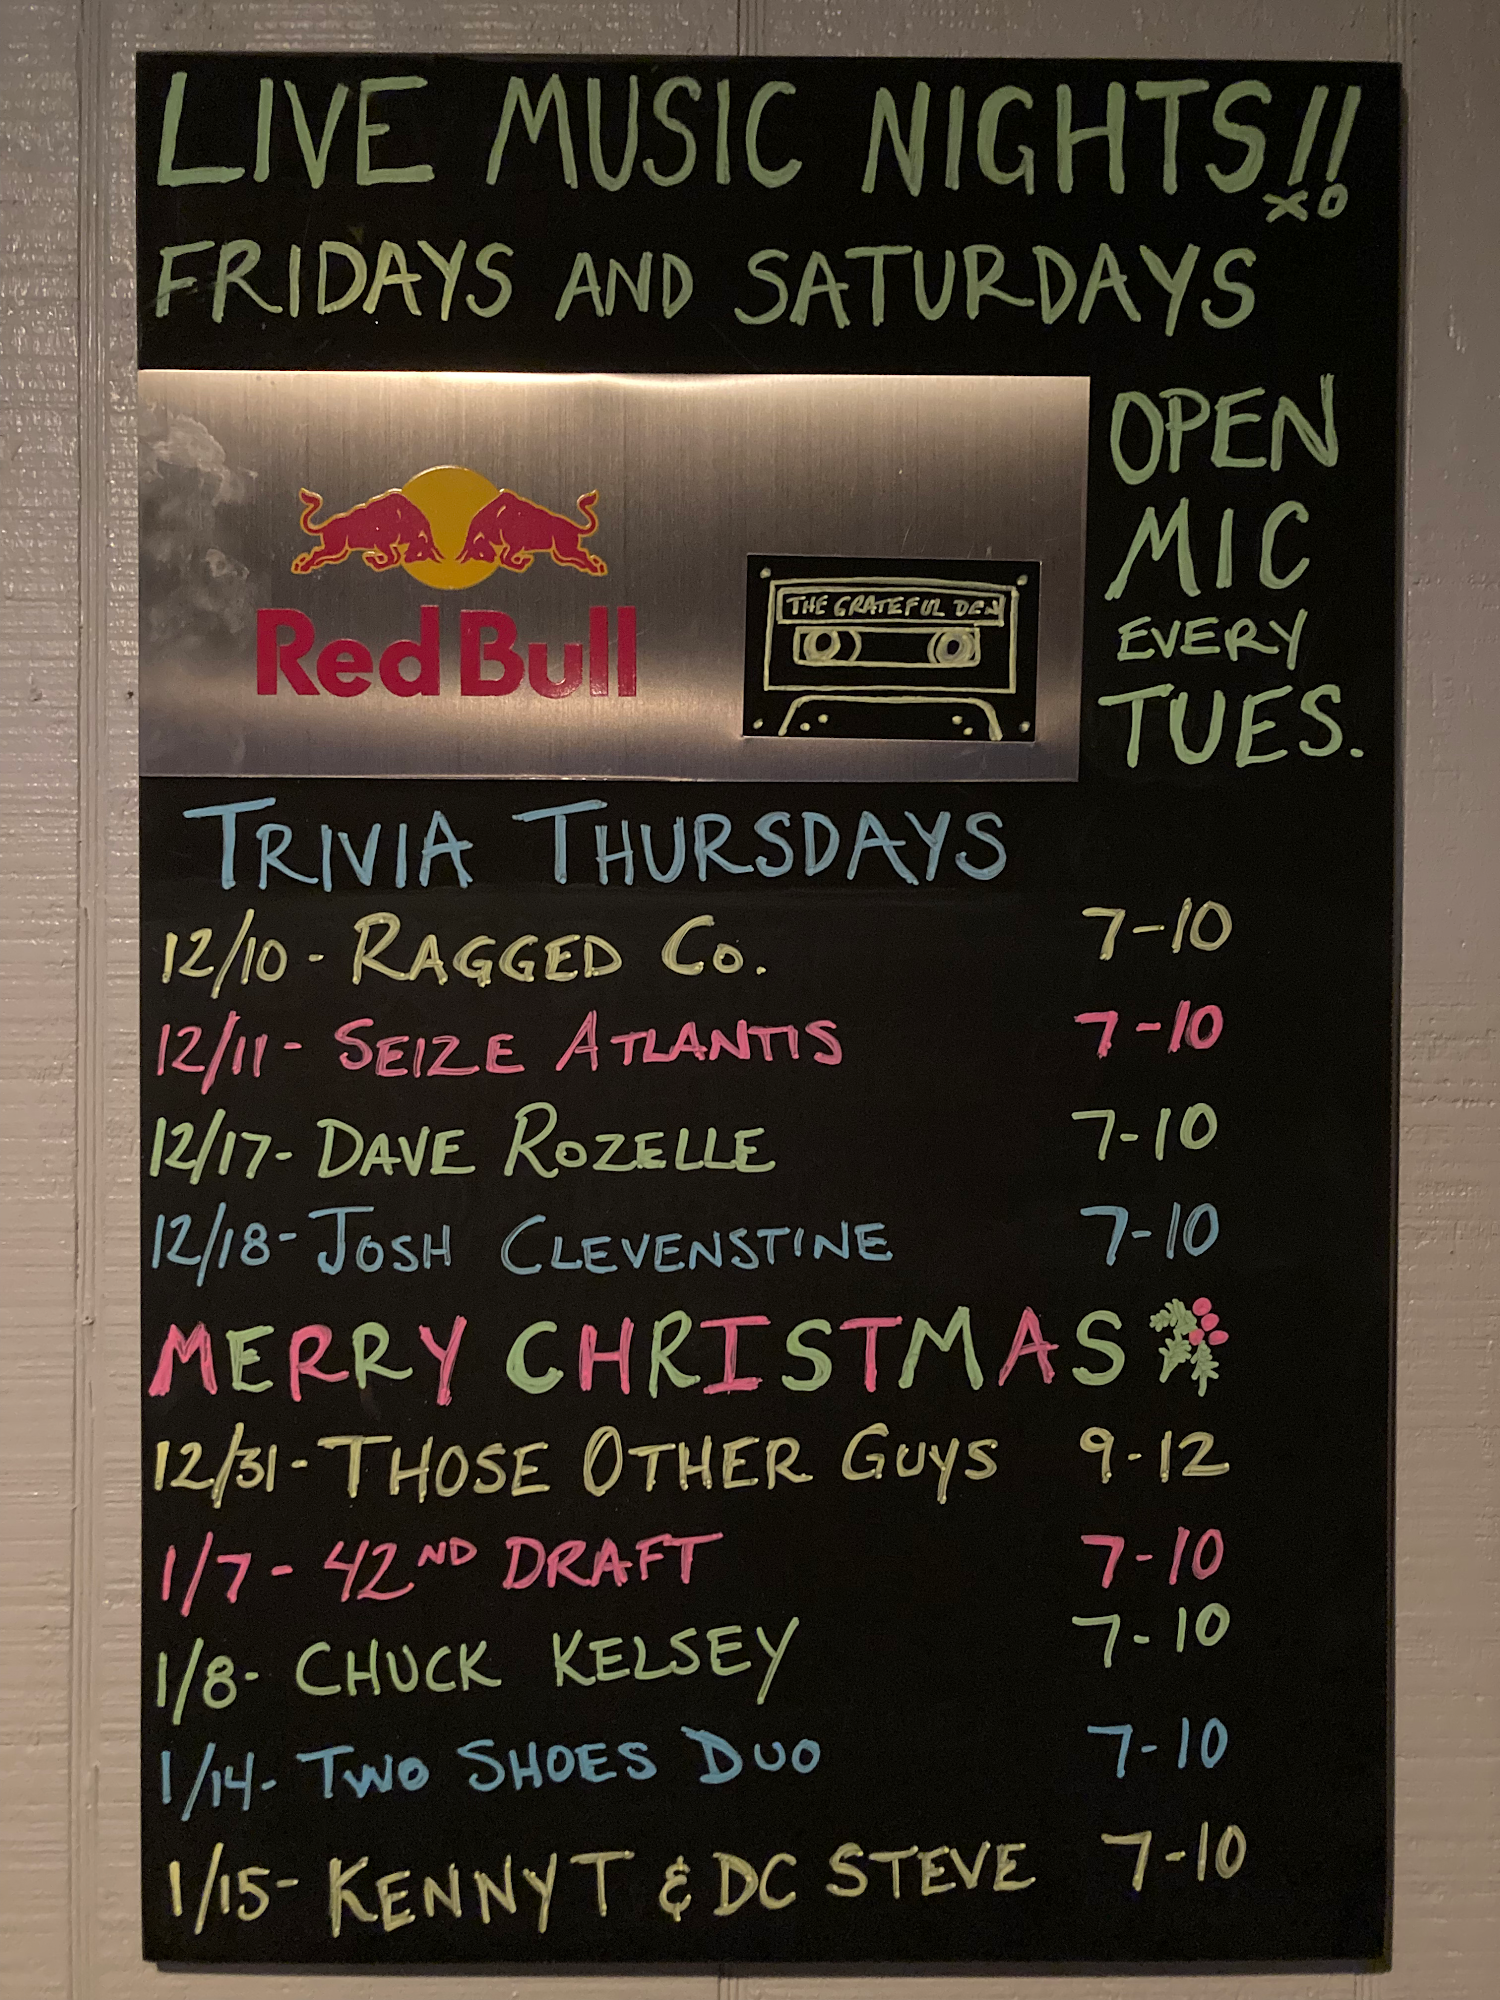 LIVE MUSIC NIGHTS!!
XO
FRIDAYS AND SATURDAYS
OPEN
MIC
EVERY
TUES.
Red Bull
THE GRATEFUL DEN
TRIVIA THURSDAYS
12/10 - RAGGED CO. 7-10
12/11 - SEIZE ATLANTIS 7-10
12/17 - DAVE ROZELLE 7-10
12/18 - JOSH CLEVENSTINE 7-10
MERRY CHRISTMAS
12/31 - THOSE OTHER GUYS 9-12
1/7 - 42ND DRAFT 7-10
1/8 - CHUCK KELSEY 7-10
1/14 - TWO SHOES DUO 7-10
1/15 - KENNY T & DC STEVE 7-10